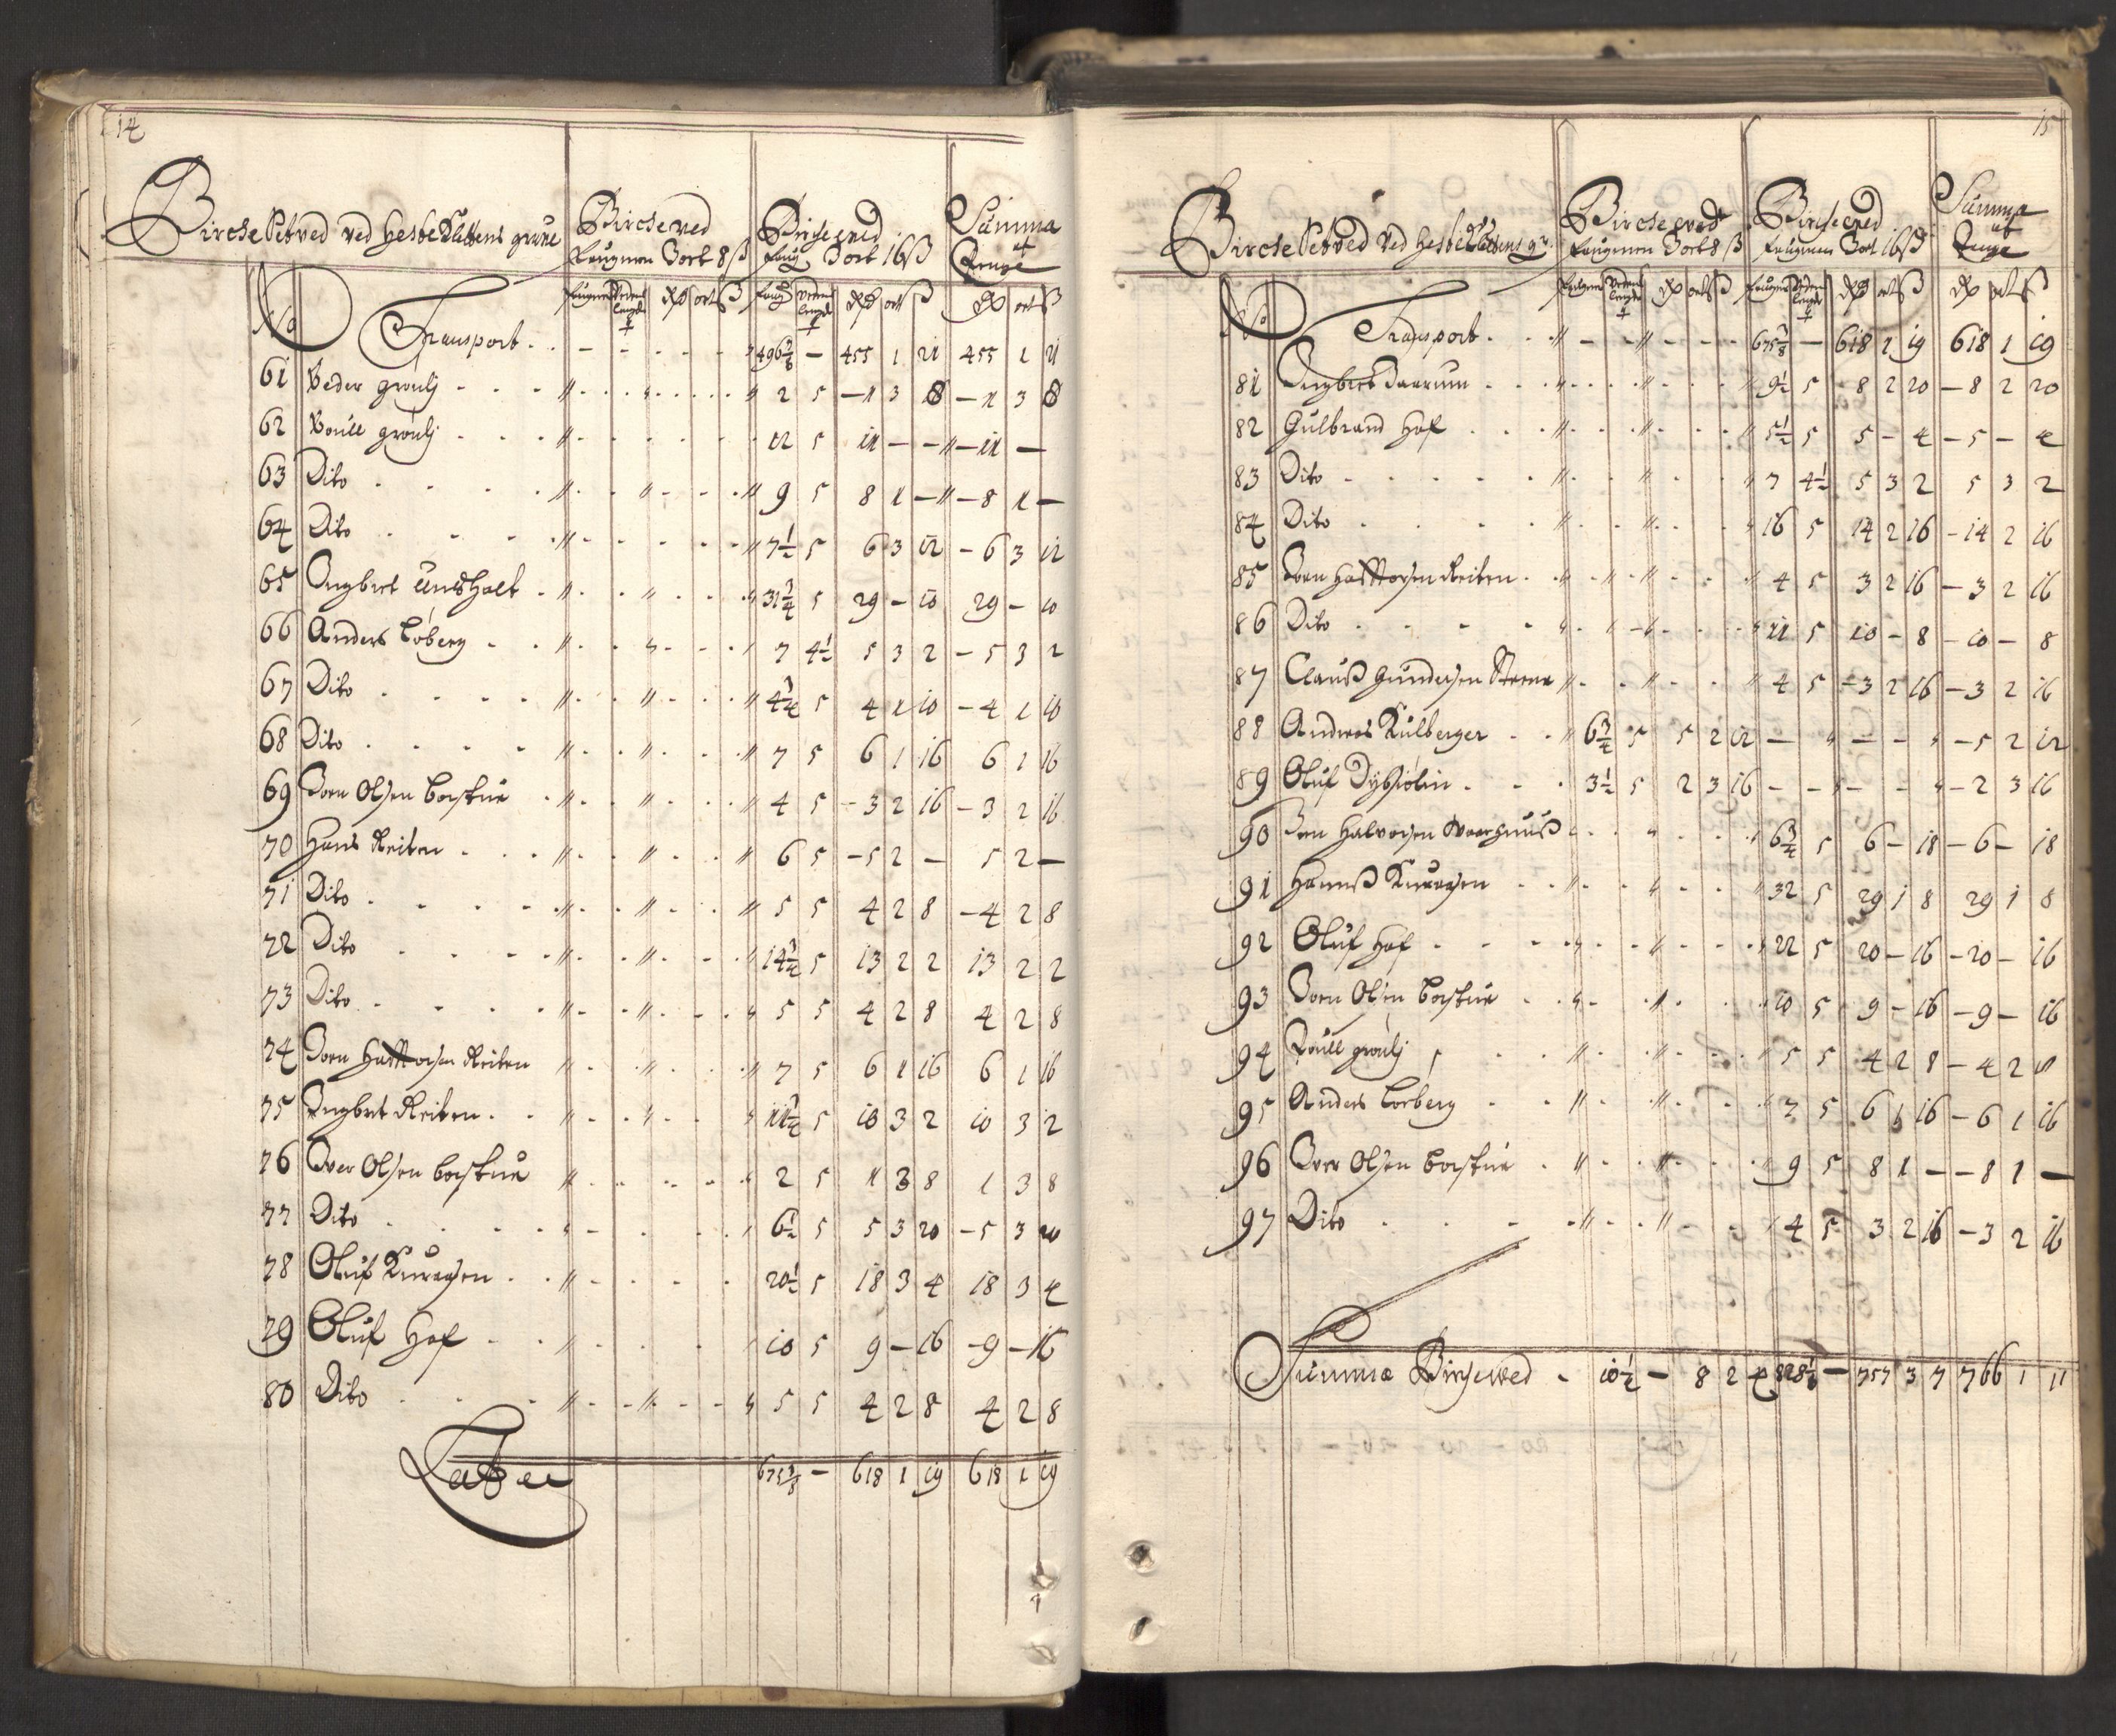 14
Birche Setved ved Hestekletens grube
Bircheved
faugnen 3 ort 8 ß
Birche ved
faug 3 ort 16 ß
Summa
af
Penge
No
Transport . . - - - - - " 496 3/8 — 455 1 21 455 1 21
61 Peder grouli - - - " - - " - - - " 2 5 — 1 3 8 — 1 3 8
62 Poull grouli - - - " 12 5 11 — — " — 11 —
63 Dito " - " - " 9 5 8 1 — " — 8 1 —
64 Dito " - - " 7 1/2 5 6 3 12 - 6 3 12
65 Engbret Undshalt " - " - " 31 3/4 5 29 — 10 29 — 10
66 Anders Loberg " - " - " 7 4 1/2 5 3 2 — 5 3 2
67 Dito " - " - " 4 3/4 5 4 1 10 — 4 1 10
68 Dito " - " - " 7 5 6 1 16 6 1 16
69 Joen Olsen " - " - " 4 5 - 3 2 16 — 3 2 16
70 Hans Reiten " - " - " 6 5 — 5 2 — 5 2 —
71 Dito " - " - " 5 5 4 2 8 — 4 2 8
72 Dito " - " - " 14 3/4 5 13 2 2 13 2 2
73 Dito " - " - " 5 5 4 2 8 4 2 8
74 Joen Reiten " - " - " 7 5 6 1 16 6 1 16
75 Engbret Reiten " - " - " 11 3/4 5 10 3 2 10 3 2
76 Iver Olsen " - - " 2 5 1 3 8 1 3 8
77 Dito " - - " 6 1/2 5 5 3 20 — 5 3 20
78 Oluf " - - 20 1/2 5 18 3 4 18 3 4
79 Oluf Hof " - - " 10 5 9 — 16 - 9 — 16
80 Dito " - " - " 5 5 4 2 8 4 2 8
Latus 675 3/8 — 618 1 19 618 1 19
15
Birche Setved ved Hestekletens gr:
Birche ved
faugnen 3 ort 8 ß
Birche ved
faugnen 3 ort 16 ß
Summa
af
Penge
No
Transport . . " - - " - - 675 3/8 — 618 1 19 618 1 19
81 Engbret " - " - " 9 1/2 5 8 2 20 — 8 2 20
82 Gulbrand Hof " - " - " 5 1/2 5 5 - 4 — 5 — 4
83 Dito " - " - " 7 4 1/2 5 3 2 5 3 2
84 Dito " - " - " 16 5 14 2 16 - 14 2 16
85 Joen Reiten " - " - " 4 5 3 2 16 — 3 2 16
86 Dito " - " - " 11 5 10 — 8 — 10 — 8
87 Clauß Gundersen " - " - " 4 5 — 3 2 16 — 3 2 16
88 Andreas Kulberger " 6 3/4 5 5 2 12 — " — — " — 5 2 12
89 Oluf 3 1/2 5 2 3 16 - - " - - " — 2 3 16
90 Joen Halvorsen " - " - " 6 3/4 5 6 — 18 — 6 — 18
91 Hannß " - " - " 32 5 29 1 8 29 1 8
92 Oluf Hof " - " - " 22 5 20 — 16 — 20 — 16
93 Joen Olsen " - " - " 10 5 9 — 16 — 9 — 16
94 Poull grouli " - " - " 5 5 4 2 8 — 4 2 8
95 Anders Loeberg " - " - " 7 5 6 1 16 — 6 1 16
96 Iver Olsen " - " - " 9 5 8 1 — — 8 1 —
97 Dito " - " - " 4 5 3 2 16 — 3 2 16
Summa Birchwed - 10 1/4 — 8 2 4 828 1/8 — 757 3 7 766 1 11